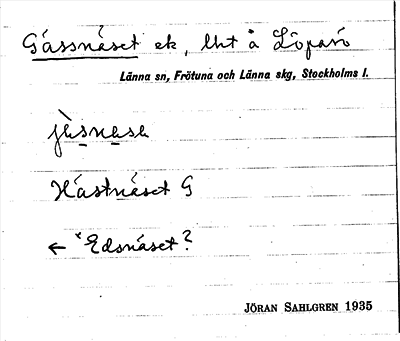 Gåssnäset ek, lht å Löparö
Länna sn, Frötuna och Länna skg, Stockholms l.
jä̀snäsə
Hästnäset G
← *Edsnäset?
JÖRAN SAHLGREN 1935